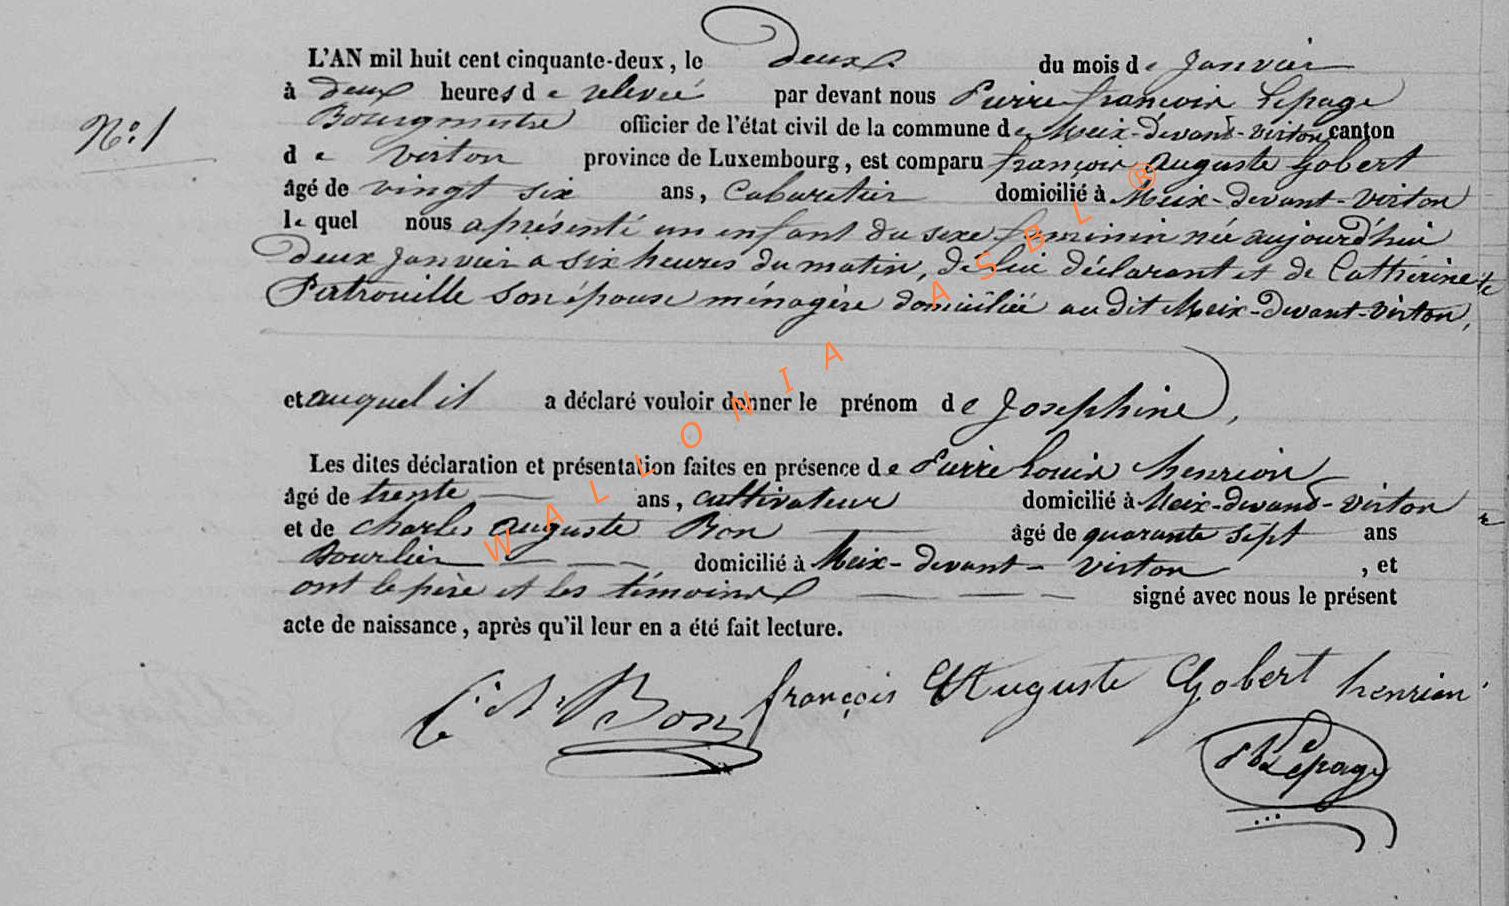 L'AN mil huit cent cinquante-deux, le Deux du mois de Janvier
à Deux heures de relevée par devant nous Pierre françois Lepage
N°: 1
Bourgmestre officier de l'état civil de la commune de Meix-Devant-Virton canton
de Virton province de Luxembourg, est comparu françois Auguste Gobert
âgé de vingt six ans, Cabaretier domicilié à Meix-Devant-Virton
lequel nous a présenté un enfant du sexe féminin née aujourd'hui
Deux Janvier a six heures du matin, de lui déclarant et de Catherine
Patrouille son épouse ménagère domiciliée au dit Meix-Devant-Virton,
et auquel il a déclaré vouloir donner le prénom de Josephine,
Les dites déclaration et présentation faites en présence de Pierre Louis henrion
âgé de trente ans, cultivateur domicilié à Meix-devant-Virton
et de Charles Auguste Bon âgé de quarante sept ans
Bourlier domicilié à Meix-Devant-Virton, et
ont le père et les témoins signé avec nous le présent
acte de naissance, après qu'il leur en a été fait lecture.
Bon françois Auguste Gobert henrion
Lepage
WALLONIA ASBL ®